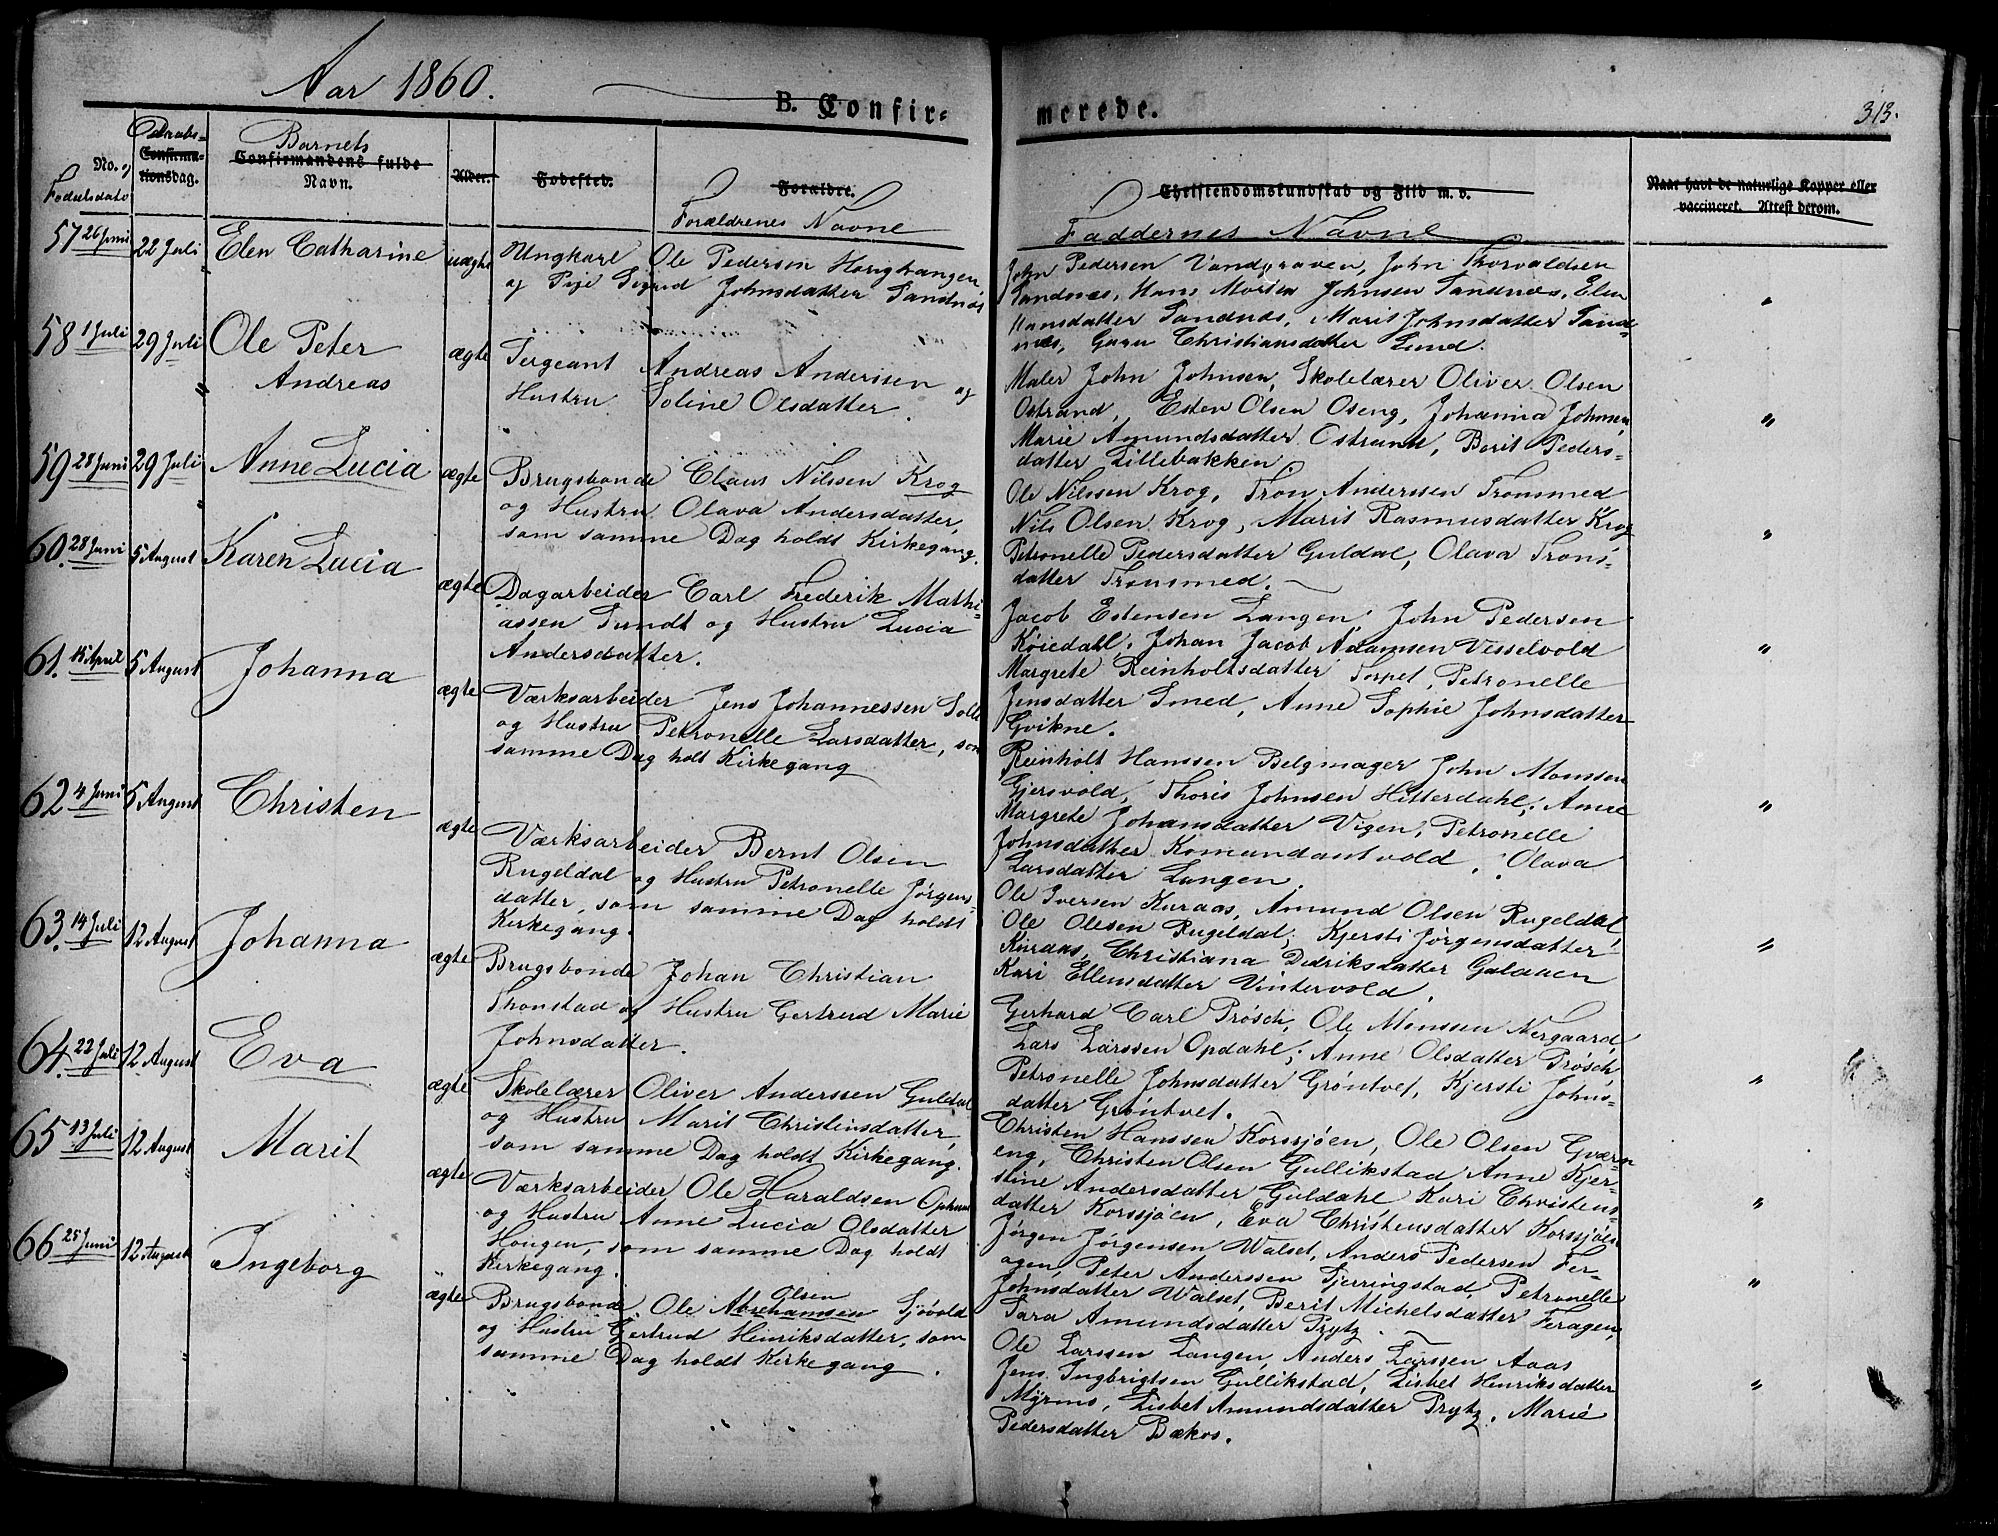 Aar 1860.
B. Confir-
merede.
313.
No. og
Fødselsdato
Daabs-
Confirma-
tionsdag.
Barnets
Confirmandens fulde
Navn.
Alter.
Fødested.
Forældre.
Forældrenes Navne
Christendomskundskab og Flid m. v.
Faddernes Navne
Naar havt de naturlige Kopper eller
vaccineret. Attest derom.
57 26 Juni 22 Juli Elen Catharine uægte
Ungkarl Ole Pedersen
og Pige Sigrid Johnsdatter Sandnæs
John Pedersen Vandgraven, John Thorvaldsen
Sandnæs, Hans Morten Johnsen Sandnæs, Elen
Hansdatter Sandnæs, Marit Johnsdatter Sand-
næs, Christiansdatter Lund.
58 1 Juli 29 Juli Ole Peter
Andreas
ægte
Sergeant Andreas Anderssen og
Hustru Soline Olsdatter.
Maler John Johnsen, Skolelærer Oliver Olsen
Ostrand, Esten Olsen Oseng, Johanna Johnsen,
Marie Amundsdatter Ostrand, Berit Peders-
datter Lillebakken
59 28 Juni 29 Juli Anne Lucia ægte
Brugsbonde Claus Nilssen Krog
og Hustru Olava Andersdatter,
som samme Dag holdt Kirkegang.
Ole Nilssen Krog, Tron Anderssen Tronsmed
Nils Olsen Krog, Marit Rasmusdatter Krog
Petronelle Pedersdatter Guldal, Olava Trons-
datter Tronsmed.
60. 28 Juni 5 August Karen Lucia ægte
Dagarbeider Carl Frederik Mathi-
assen Tundt og Hustru Lucia
Andersdatter.
Jacob Estensen Langen, John Pedersen
Køiedahl, Johan Jacob Adamsen Visselvold
Margrete Reinholtsdatter Torpet, Petronelle
Jensdatter Smed, Anne Sophie Johnsdatter
Gvikne.
61. 15 April 5 August Johanna ægte
Værksarbeider Jens Johannessen Solli
og Hustru Petronelle Larsdatter, som
samme Dag holt Kirkegang
Reinholt Hanssen Belgmager John Monssen
Gjersvold, Thoris Johnsen Hitterdahl, Anne
Margrete Johansdatter Vigen, Petronelle
Johnsdatter Komandantvold, Olava
Larsdatter Langen.
62 4 Juni 5 August Christen ægte
Værksarbeider Bernt Olsen
Rugeldal og Hustru Petronelle Jørgens-
datter, som samme Dag holdt
Kirkegang.
Ole Iversen Kuraas, Amund Olsen Rugeldal,
Ole Olesen Rugeldal, Kjersti Jørgensdatter
Kuraas, Christiana Dedriksdatter Galaaen
Kari Ellensdatter Vintervold.
63. 14 Juli 12 August Johanna ægte
Brugsbonde Johan Christian
Thonstad og Hustru Gertrud Marie
Johnsdatter.
Gerhard Carl Prøsch, Ole Monssen Nergaard,
Lars Larssen Opdahl, Anne Olsdatter Prøsch
Petronelle Johnsdatter Grøntvet, Kjersti Johns-
datter Grøntvet.
64. 22 Juli 12 August Eva ægte
Skolelærer Oliver Anderssen Guldal
og Hustru Marit Christensdatter,
som samme Dag holdt Kirkegang.
Christen Hanssen Korssjøen, Ole Olsen Gværn-
eng, Christen Olsen Gullikstad Anne Kjer-
stine Andersdatter Guldahl Kari Christens-
datter Korssjøen, Eva Christensdatter Korssjøen
65 13 Juli 12 August Marit ægte
Værksarbeider Ole Haraldsen Ophus
og Hustru Anne Lucia Olsdatter
Hougen, som samme Dag holdt
Kirkegang.
Jørgen Jørgensen Walset, Anders Pedersen Fer-
agen, Peter Anderssen Tjerringstad, Petronelle
Johnsdatter Walset, Berit Michelsdatter Feragen,
Sara Amundsdatter Prytz.
66 25 Juni 12 August Ingeborg ægte
Brugsbonde Ole Abrahamsen Olsen Sjøvold
og Hustru Gertrud Henriksdatter, som
samme Dag holdt Kirkegang.
Ole Larssen Langen, Anders Larssen Aaas
Jens Ingbrigtsen Gullikstad, Lisbet Henriksdatter
Myrmo, Lisbet Amundsdatter Prytz, Marie
Pedersdatter Bækos.